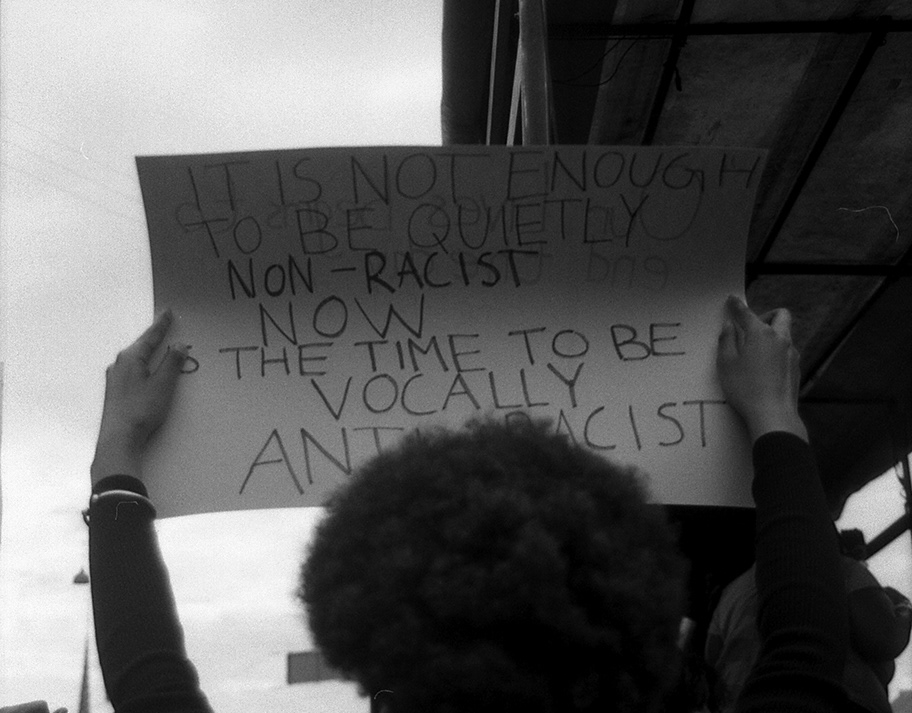 IT IS NOT ENOUGH
TO BE QUIETLY
NON-RACIST
NOW
S THE TIME TO BE
VOCALLY
ANTI-RACIST